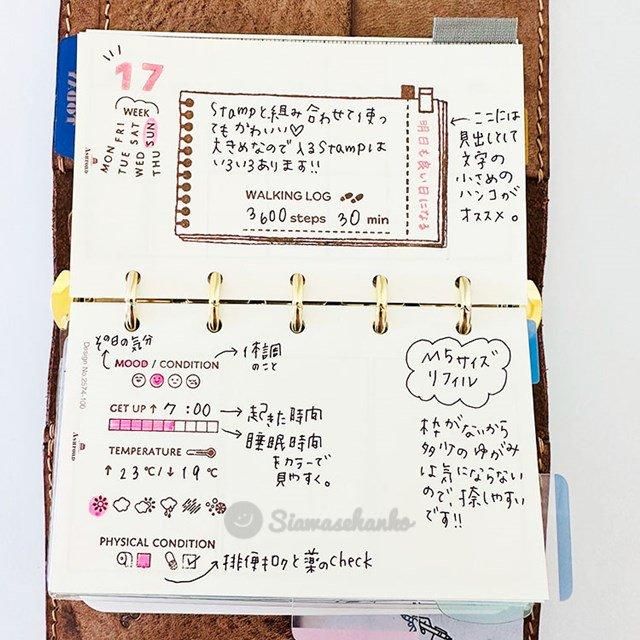 TODAY
17
WEEK
MON FRI
TUE SAT
WED SUN
THU
Stampと組み合わせて使っ
てもかわいい♡
大きめなので入るStampは
いろいろあります!!
WALKING LOG
3600 steps 30 min
明日も良い日になる
←ここには
見出しとして
文字の
小さめの
ハンコが
オススメ。
その日の気分
MOOD / CONDITION
→体調
のこと
GET UP ↑ 7:00
→起きた時間
→睡眠時間
をカラーで
見やすく。
TEMPERATURE
↑ 23 ℃/↓ 19 ℃
PHYSICAL CONDITION
→排便キロクと薬のCheck
M5サイズ
リフィル
枠がないから
多少のゆがみ
は気にならない
ので、捺しやすい
です!!
Design No.2574-100
Siawasehanko